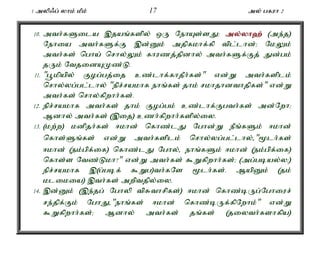 1 அலிஃப் லாம் மீம் 17 அல் பகரா 2
10. அவர்களுடைய இதயங்களில் ஒரு நோயுள்ளது; அல்லாஹ் (அந்த)
நோயை அவர்களுக்கு இன்னும் அதிகமாக்கி விட்டான்; மேலும்
அவர்கள் பொய் சொல்லும் காரணத்தினால் அவர்களுக்குத் துன்பம்
தரும் வேதனையுமுண்டு.
11. "பூமியில் குழப்பத்தை உண்டாக்காதீர்கள்" என்று அவர்களிடம்
சொல்லப்பட்டால் "நிச்சயமாக நாங்கள் தாம் சமாதானவாதிகள்" என்று
அவர்கள் சொல்கிறார்கள்.
12. நிச்சயமாக அவர்கள் தாம் குழப்பம் உண்டாக்குபவர்கள் அன்றோ;
ஆனால் அவர்கள் (இதை) உணர்கிறார்களில்லை.
13. (மற்ற) மனிதர்கள் ஈமான் கொண்டது போன்று நீங்களும் ஈமான்
கொள்ளுங்கள் என்று அவர்களிடம் சொல்லப்பட்டால், "மூடர்கள்
ஈமான் (நம்பிக்கை) கொண்டது போல், நாங்களும் ஈமான் (நம்பிக்கை)
கொள்ள வேண்டுமா?" என்று அவர்கள் கூறுகிறார்கள்; (அப்படியல்ல;)
நிச்சயமாக இ(ப்படிக் கூறுப)வர்களே மூடர்கள். ஆயினும் (தம்
மடமையை) இவர்கள் அறிவதில்லை.
14. இன்னும் (இந்தப் போலி விசுவாசிகள்) ஈமான் கொண்டிருப்போரைச்
சந்திக்கும் போது, "நாங்கள் ஈமான் கொண்டிருக்கிறோம்" என்று
கூறுகிறார்கள்; ஆனால் அவர்கள் தங்கள் (தலைவர்களாகிய)